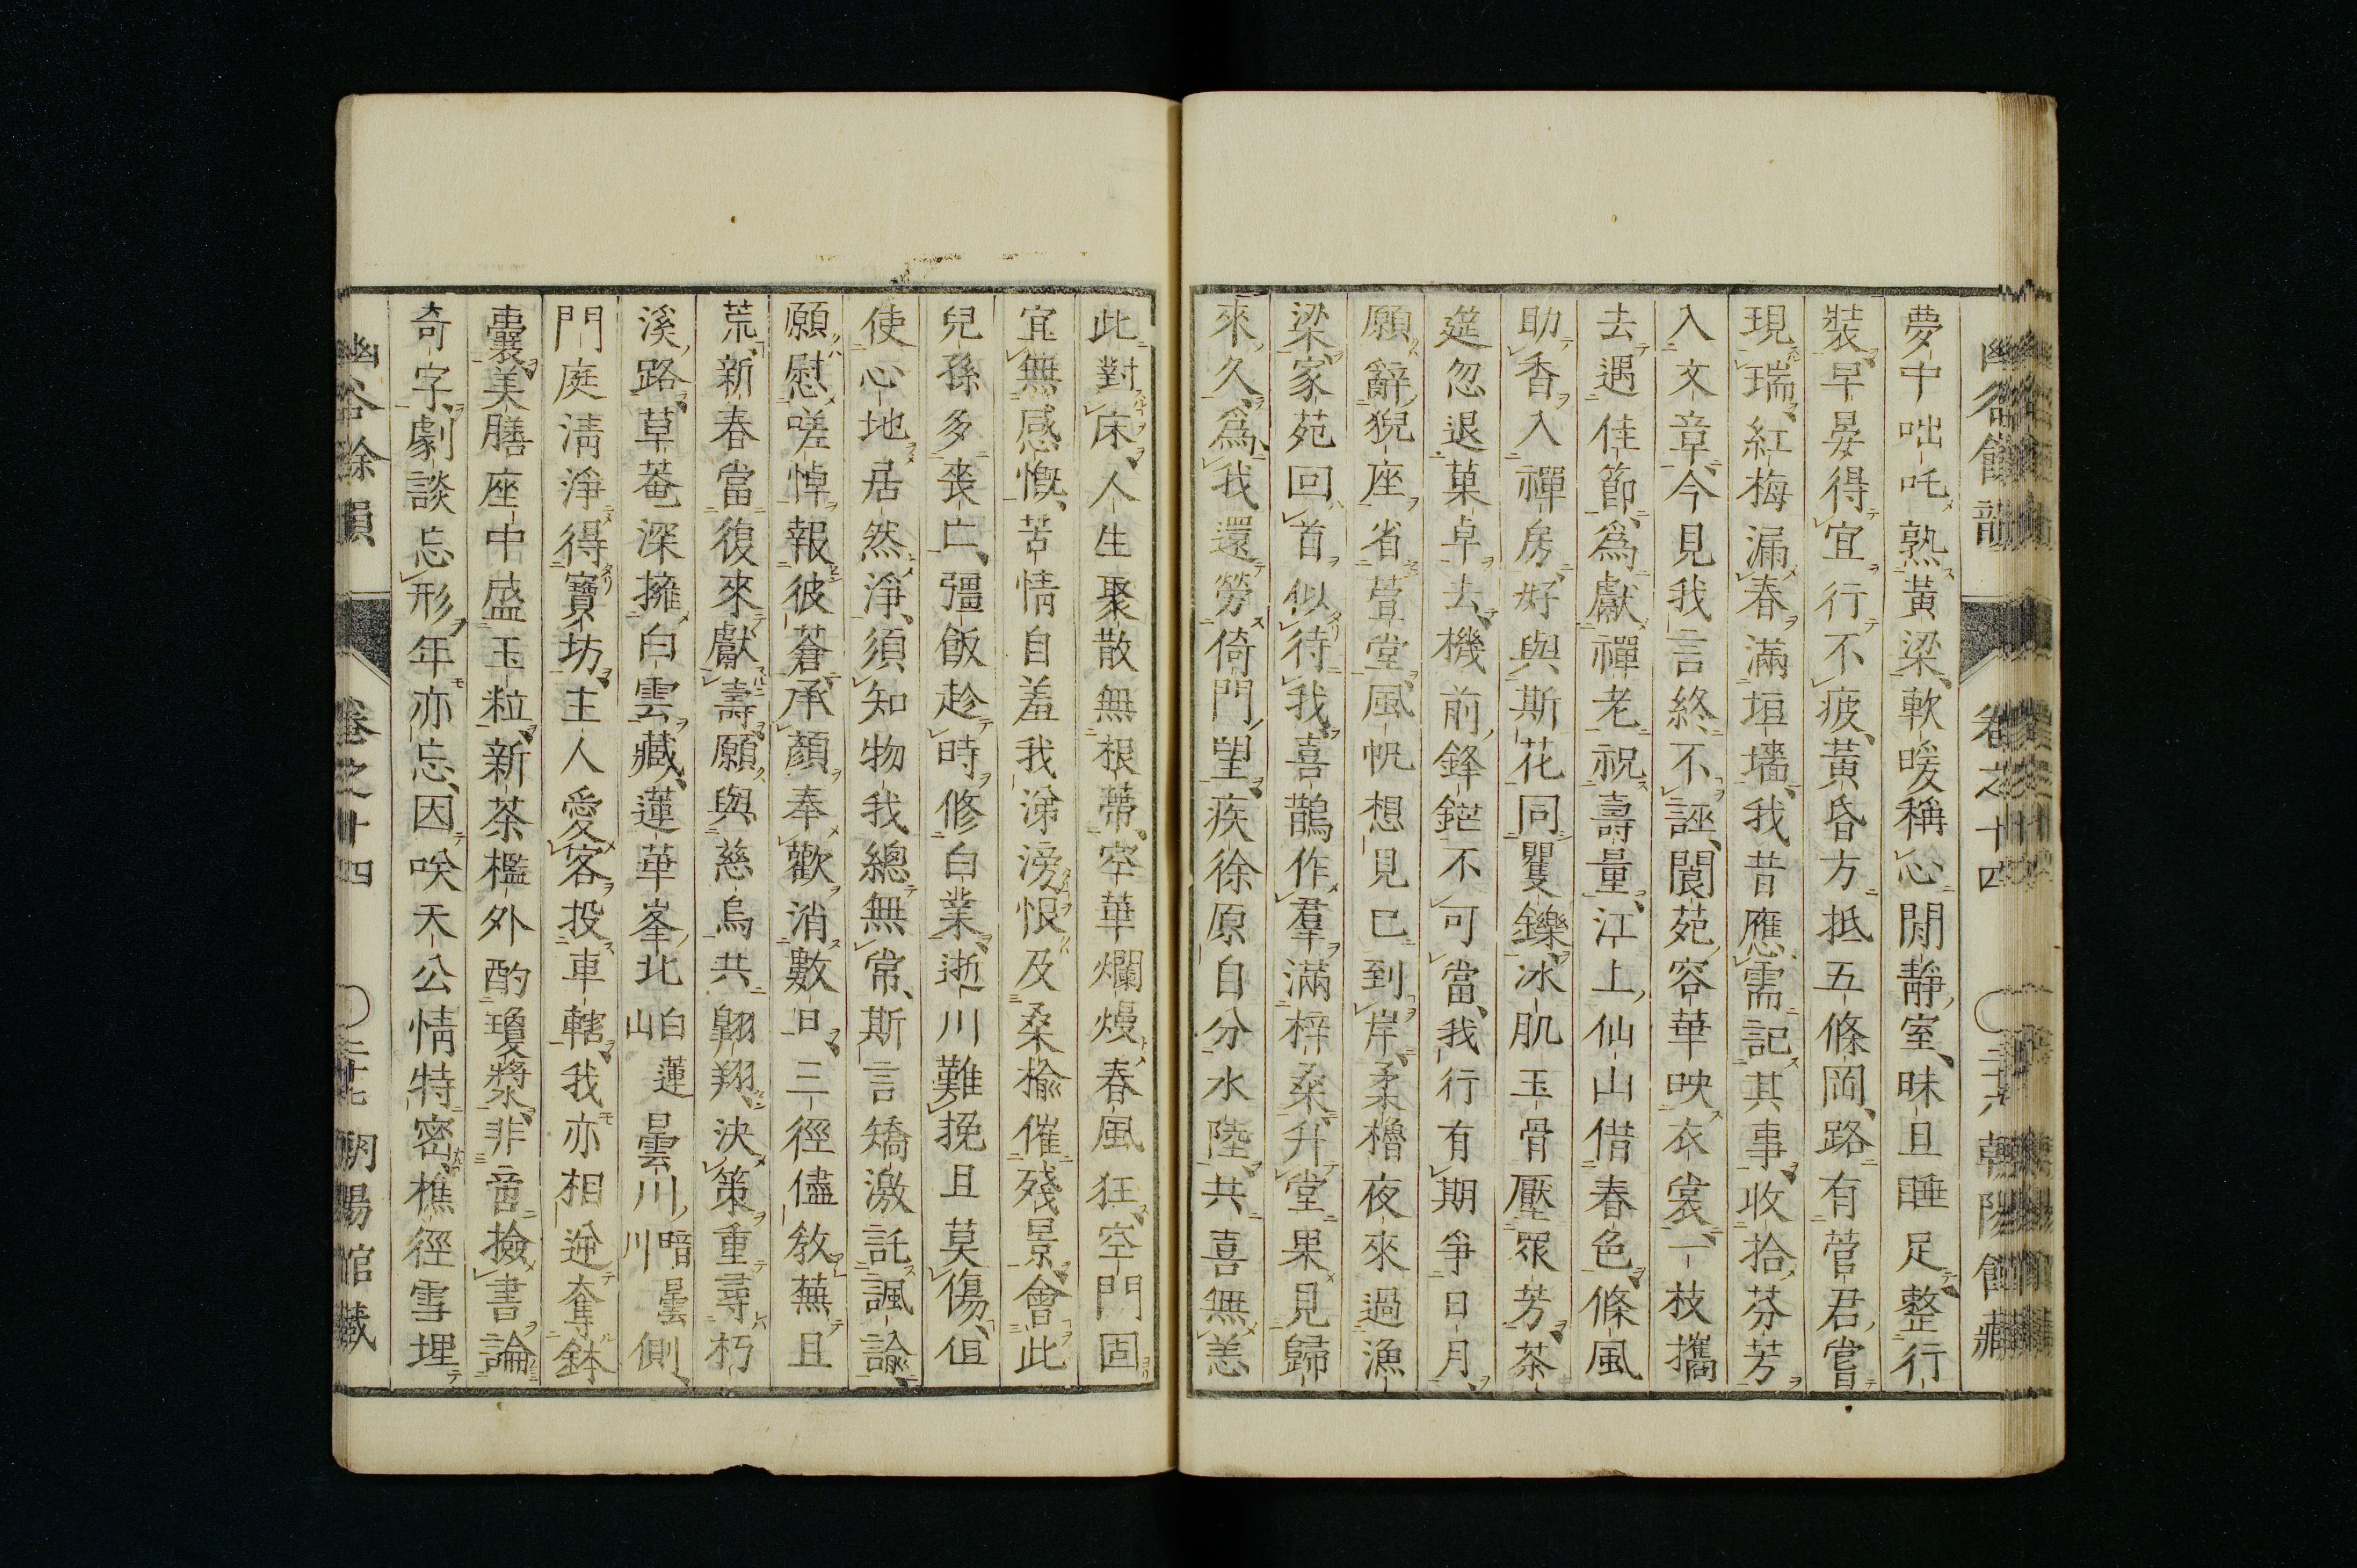 幽谷餘韻 卷之十四 〇二十六 朝陽館藏
夢中咄吒熟黃梁軟暖稱心閒靜室昧旦睡足整行
裝早晏得宜行不疲黃昏方抵五條岡路有菅君嘗
現瑞紅梅漏春滿垣墻我昔應需記其事收拾芬芳
入文章今見我言終不誣閬苑容華映衣裳一枝攜
去遇佳節為獻禪老祝壽量江上仙山借春色條風
助香入禪房好與斯花同矍鑠冰肌玉骨壓眾芳茶
筵忽退菓卓去機前鋒鋩不可當我行有期爭日月
願辭猊座省萱堂風帆想見已到岸柔櫓夜來過漁
梁家苑回首似待我喜鵲作羣滿梓桑升堂果見歸
來久為我還勞倚門望疾徐原自分水陸共喜無恙
此對床人生聚散無根蔕空華爛熳春風狂空門固
宜無感慨苦情自羞我涕滂恨及桑榆催殘景會此
兒孫多喪亡彊飯趁時修白業逝川難挽且莫傷但
使心地居然淨須知物我總無常斯言矯激託諷諭
願慰嗟悼報彼蒼承顏奉歡消數日三徑儘教蕪且
荒新春當復來獻壽願與慈烏共翱翔決策重尋朽
溪路草菴深擁白雲藏蓮華峯北白蓮山曇川暗曇川側
門庭淸淨得寶坊主人愛客投車轄我亦相逆奪鉢
囊美膳座中盛玉粒新茶檻外酌瓊漿非啻撿書論
奇字劇談忘形年亦忘因咲天公情特密樵徑雪埋
幽谷餘韻 卷之十四 〇二十七 朝陽館藏